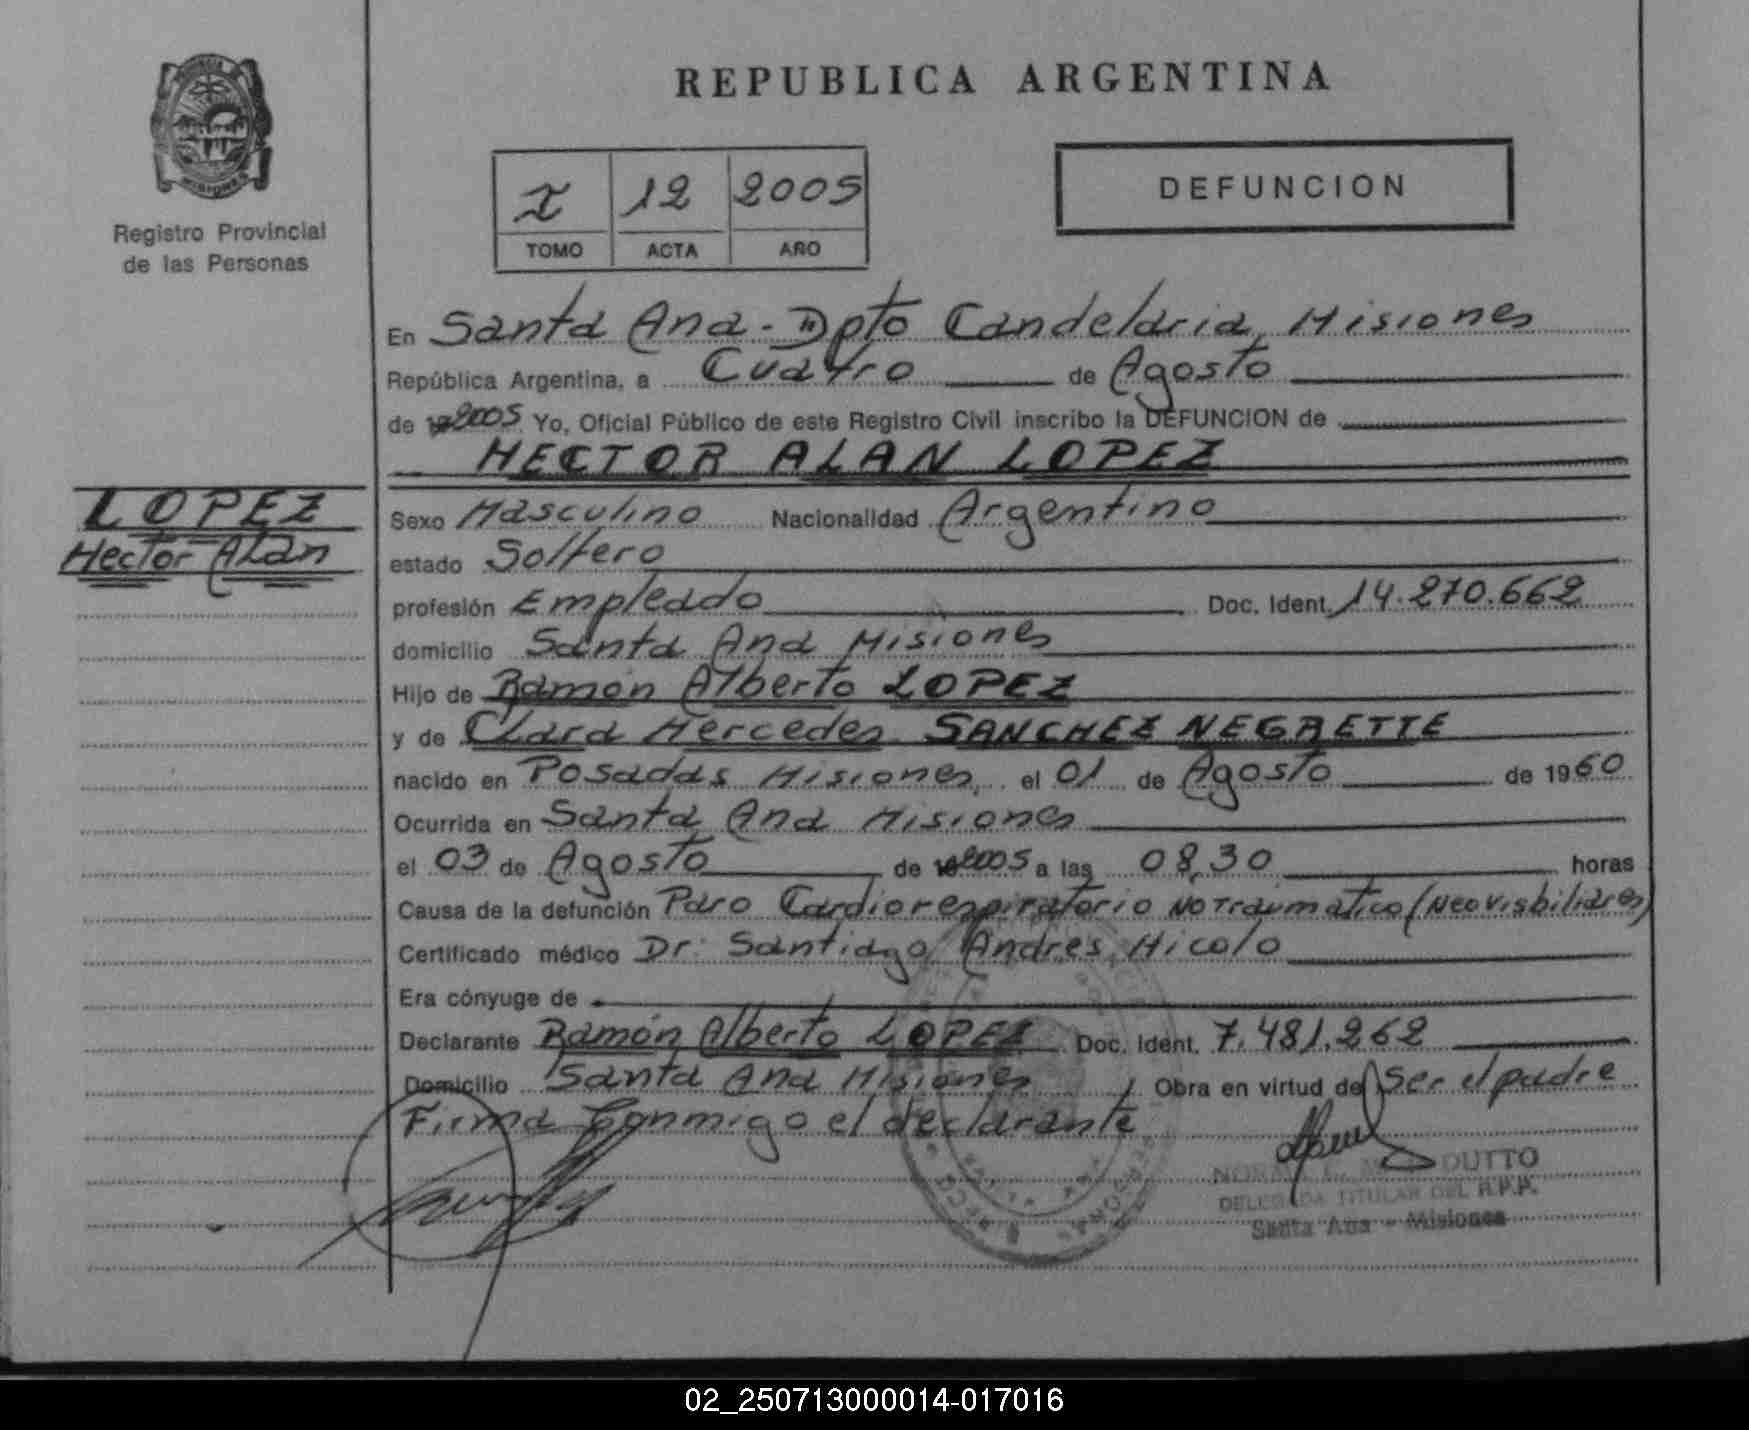 REPUBLICA ARGENTINA
MISIONES
Registro Provincial
de las Personas
I 12 2005
TOMO ACTA AÑO
DEFUNCION
En Santa Ana - Dpto Candelaria, Misiones
República Argentina, a Cuatro de Agosto
de 2005 Yo, Oficial Público de este Registro Civil inscribo la DEFUNCION de
HECTOR ALAN LOPEZ
LOPEZ
Hector Alan
Sexo Masculino Nacionalidad Argentino
estado Soltero
profesión Empleado Doc. Ident. 14.270.662
domicilio Santa Ana Misiones
Hijo de Ramón Alberto LOPEZ
y de Clara Mercedes SANCHEZ NEGRETTE
nacido en Posadas Misiones, el 01 de Agosto de 1960
Ocurrida en Santa Ana Misiones
el 03 de Agosto de 2005 a las 08,30 horas
Causa de la defunción Paro Cardiorespiratorio NO Traumatico (Neo Visbiliares)
Certificado médico Dr. Santiago Andres Micolo
Era cónyuge de
Declarante Ramón Alberto LOPEZ Doc. Ident. 7.481.262
Domicilio Santa Ana Misiones Obra en virtud de Ser el padre
Firma Conmigo el declarante
DUTTO
DELEGADA TITULAR DEL R.P.P.
Santa Ana - Misiones
02_250713000014-017016